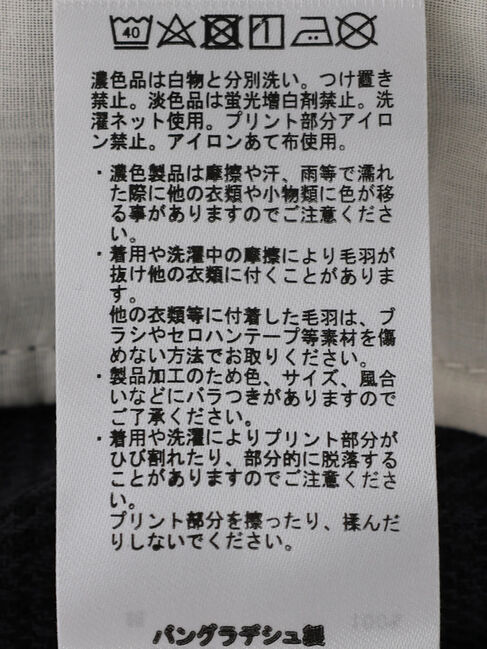 40
濃色品は白物と分別洗い。つけ置き
禁止。淡色品は蛍光増白剤禁止。洗
濯ネット使用。プリント部分アイロ
ン禁止。アイロンあて布使用。
・濃色製品は摩擦や汗、雨等で濡れ
た際に他の衣類や小物類に色が移
る事がありますのでご注意くださ
い。
・着用や洗濯中の摩擦により毛羽が
抜け他の衣類に付くことがありま
す。
他の衣類等に付着した毛羽は、ブ
ラシやセロハンテープ等素材を傷
めない方法でお取りください。
・製品加工のため色、サイズ、風合
いなどにバラつきがありますので
ご了承ください。
・着用や洗濯によりプリント部分が
ひび割れたり、部分的に脱落する
ことがありますのでご注意くださ
い。
プリント部分を擦ったり、揉んだ
りしないでください。
バングラデシュ製